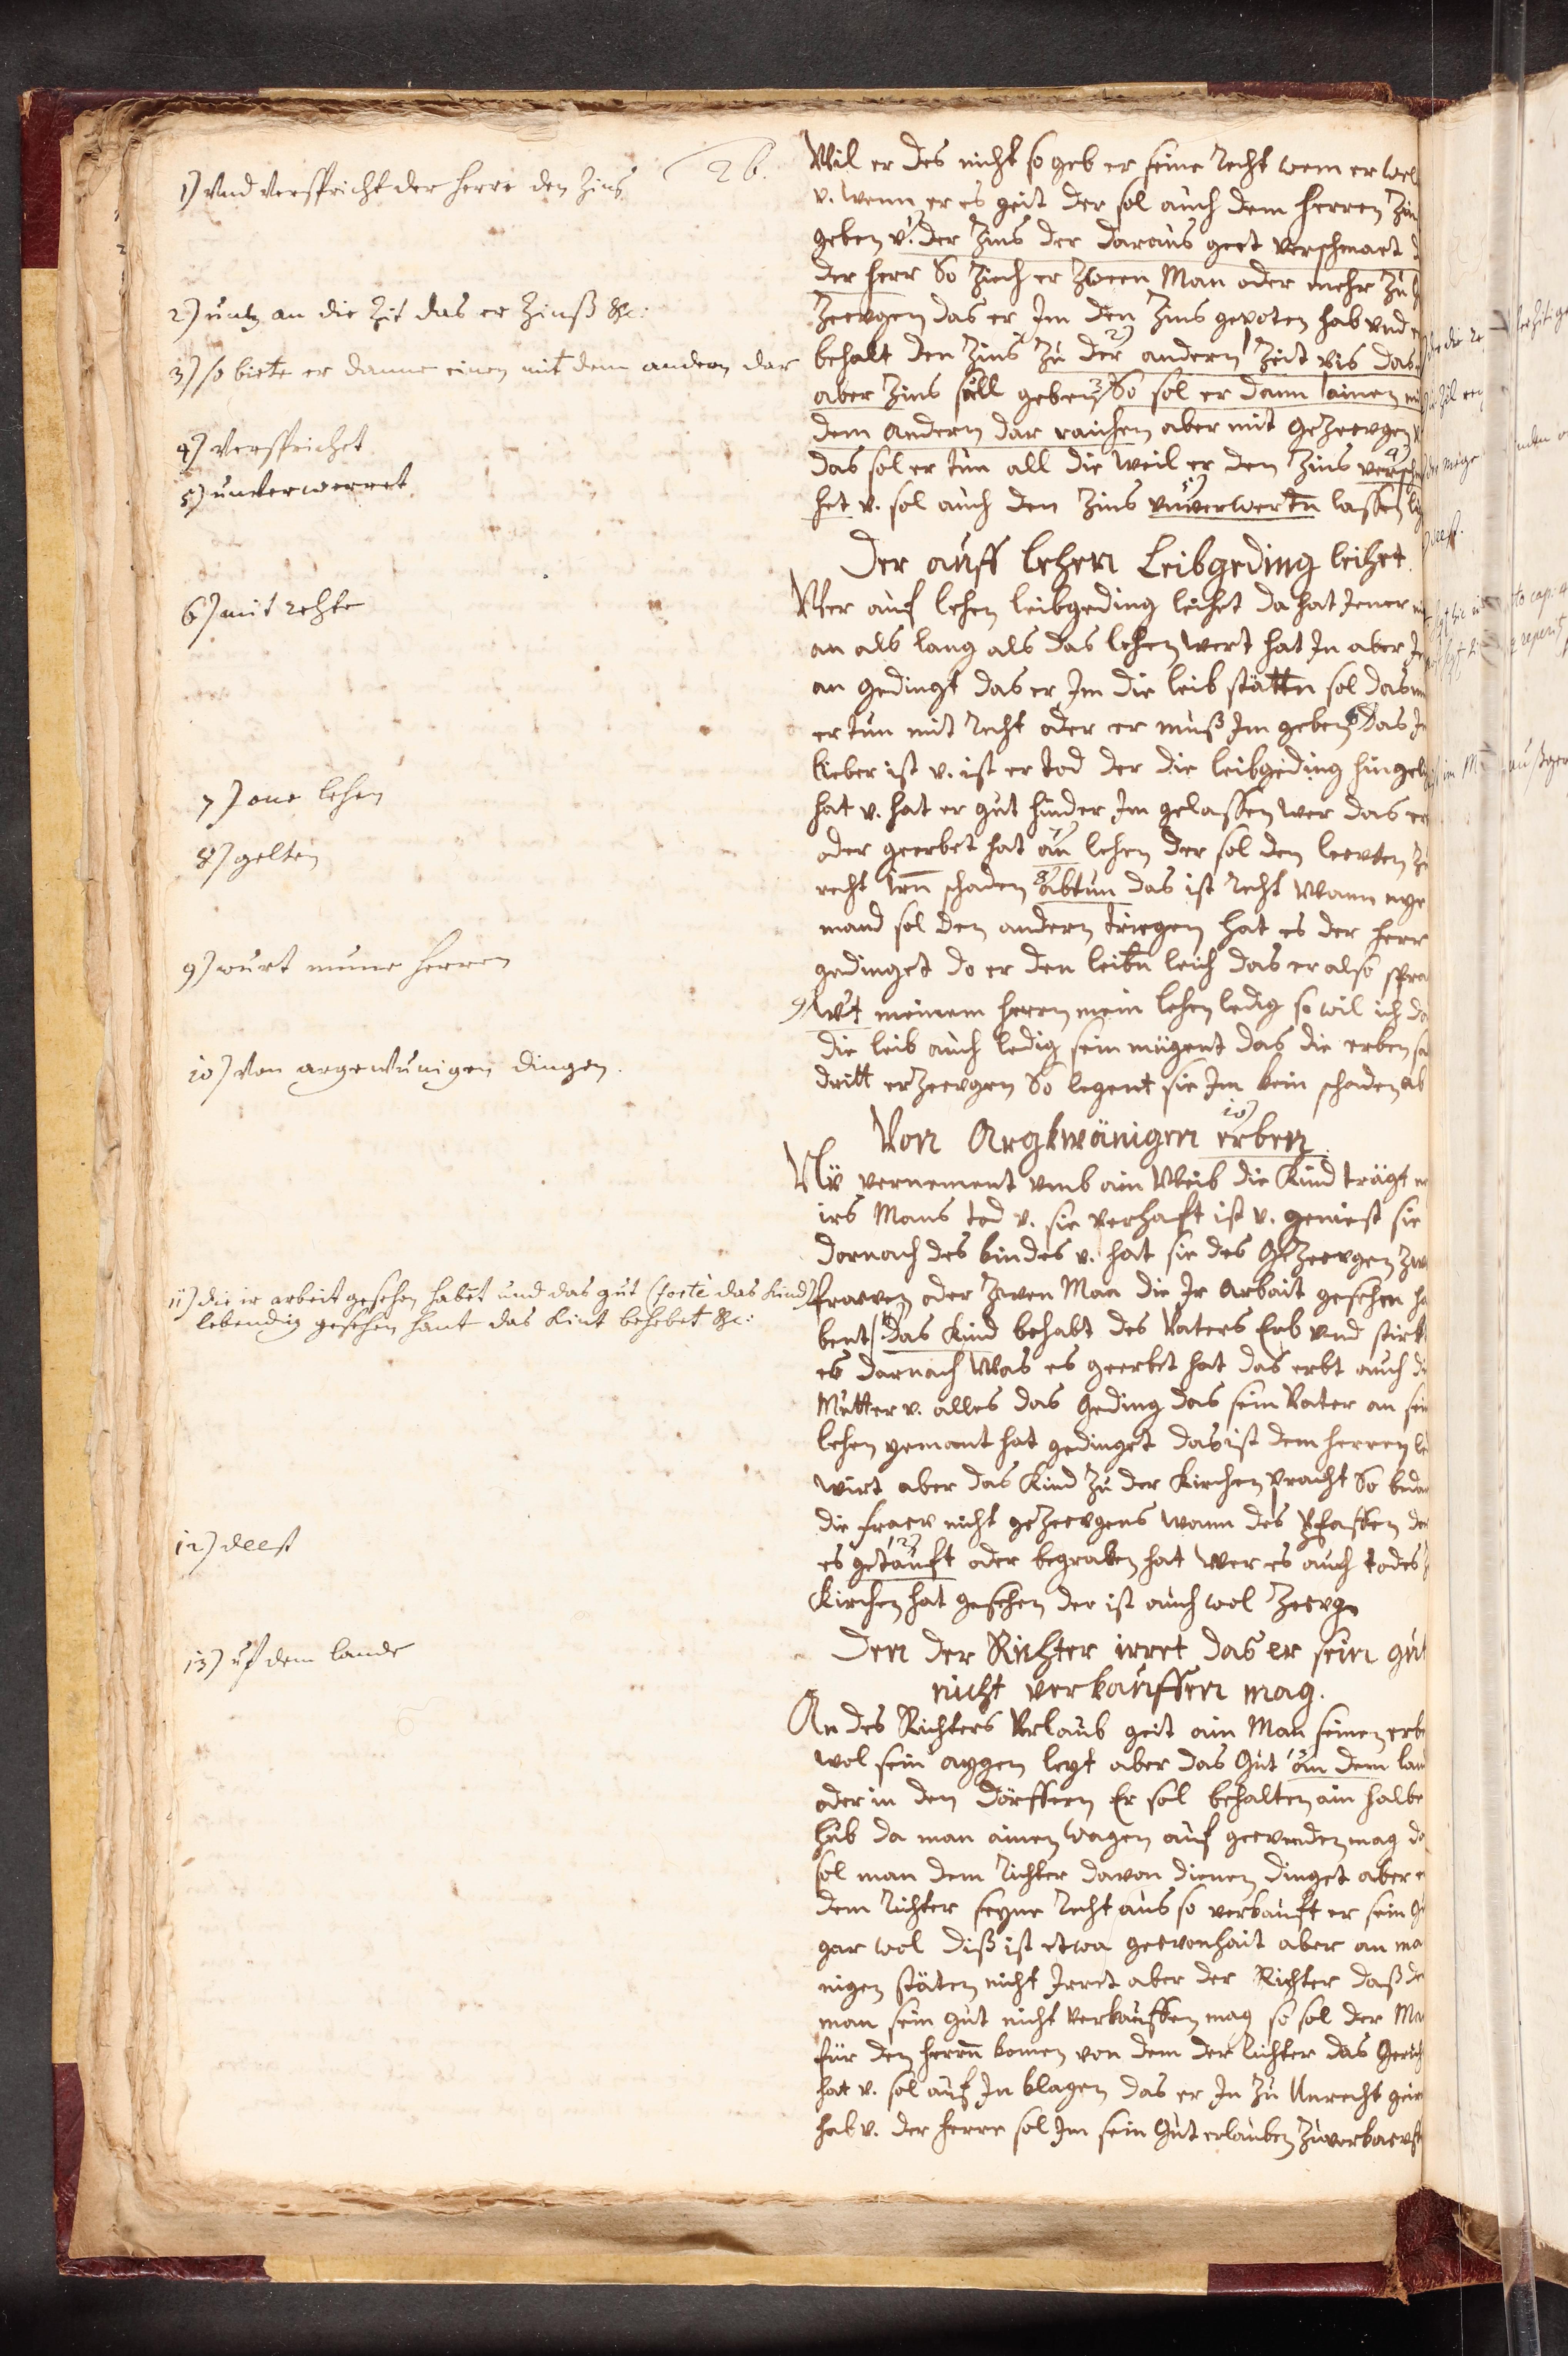 26.
1) Vnd verspricht der herre den Zins
2) untz an die Zit das er Zinß &c:
3) so biete er danne einen mit dem andern dar
4) verspricht
5) unverworret
6) mit rehte
7) one lehen
8) gelten
9) wurt mime herren
10) Von argewünigen dingen.
11) die ir arbeit gesehen habet und das gut (forte das Kind)
lebendig gesehen hant das Kint behebet &c:
12) deest
13) uf dem lande
Wil er des nicht so geb er seine recht wem er wel
v. wenn er es geit der sol auch dem herren Zin
geben v. 1) der Zins der daraus geet verschmaet
der herr So Ziech er Zween Man oder mehr Zu
Zeevgen das er Im den Zins gepoten hab vnd
behalt den Zins Zu der 2) andern Zeit bis das
aber Zins soll geben 3) So sol er dann ainen
dem andern dar raichen aber mit geZeevgen
das sol er tun all die weil er den Zins 4) versch
het v. sol auch den Zins 5) vnverwertn lassen
Der auff lehen Leibgeding leihet.
Wer auf lehen leibgeding leihet da hat Jener
an als lang als das lehen wert hat In aber
an gedingt das er Im die leib stättn sol das
er tun mit recht oder er muß Im geben 6) das
lieber ist v. ist er tod der die leibgeding hingel
hat v. hat er gut hinder Im gelassen wer das
oder geerbet hat 7) an lehen der sol den leevten
recht irn schaden 8) abtun das ist recht Wann nye
mand sol den andern triegen hat es der herr
gedinget do er den leibn leich das er also spra
9) Wirt meinem herrn mein lehen ledig so wil ich
die leib auch ledig sein mügent das die erben
dritt erZeevgen So legent sie Im kein schaden ab
Von Argkwänigen 10) erben
Nu vernement vmb ain Weib die Kind trägt
irs Mans tod v. sie verhaft ist v. geniest sie
dornach des kindes v. hat sie des GeZeevgen Zwo
fraeven oder Zwen Man die Ir Arbait gesehen ha
bent 11) das Kind behabt des Vaters Erb vnd stirbt
es darnach Was es geerbet hat das erbt auch
Mutter v. alles das Geding das sein Vater an sein
lehen yemant hat gedinget das ist dem herren
wirt aber das Kind Zu der Kirchen bracht So
die fraev nicht geZeevgens wann des Pfaffen
es 12) getauft oder begraben hat wer es auch todes
Kirchen hat gesehen der ist auch wol Zeevge
Den der Richter irret das er sein gut
nicht verkauffen mag.
An des Richters Verlaub geit ain Man seinen erbn
wol sein aygen leyt aber das Gut 13) an dem lan
oder in den dörffern Er sol behalten ain halbe
hub da man ainen wagen auf geevenden mag
sol man dem Richter davon dienen dinget aber
dem Richter seyne recht aus so verkauft er sein
gar wol diß ist etwa geevonhait aber an ma
nigen stäten nicht Irret aber der Richter daß
man sein gut nicht verkauffen mag so sol der Ma
für den herrn komen von dem der Richter das Gerich
hat v. sol auf In klagen das er In Zu Unrecht
hab v. der herre sol Im sein Gut erlauben Zu verkaevffn